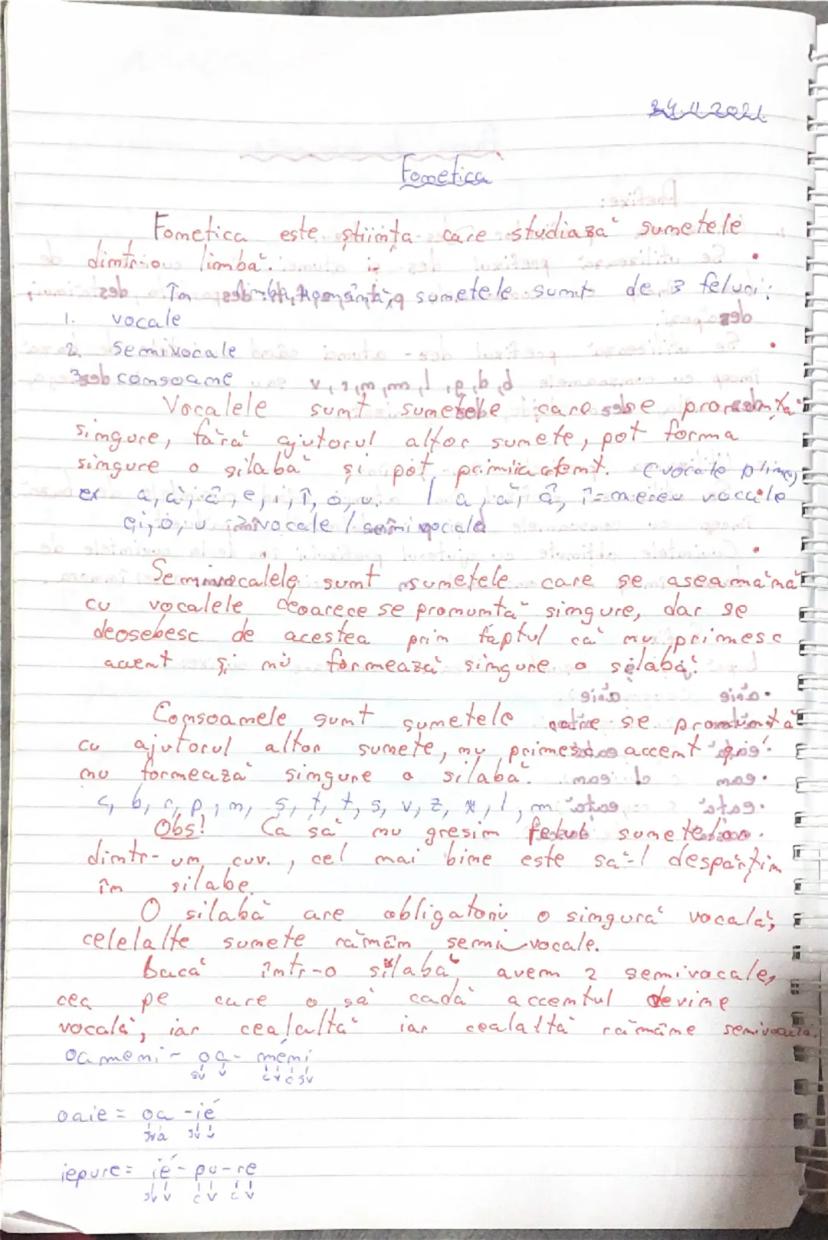 24.11.2021
Fonetica
Fonetica este știința care studiază sunetele
dintr-o limbă.
În limba română sunetele sunt de 3 feluri:
1. vocale
2. semivocale
3. consoane
Vocalele sunt sunetele care se pronunță
singure, fără ajutorul altor sunete, pot forma
singure o silabă și pot primi accent. (vocale pline)
ex a, ă, â, e, i, î, o, u. / a, ă, â, î = mereu vocale
e, i, o, u = vocale / semivocale
Semivocalele sunt sunetele care se aseamănă
cu vocalele deoarece se pronunță singure, dar se
deosebesc de acestea prin faptul că nu primesc
accent și nu formează singure o silabă.
Consoanele sunt sunetele care se pronunță
cu ajutorul altor sunete, nu primesc accent și
nu formează singure o silabă.
c, b, r, p, n, ș, t, ț, s, v, z, x, l, m
Obs! Ca să nu gresim felul sunetelor
dintr-un cuv., cel mai bine este să-l despărțim
în silabe.
O silabă are obligatoriu o singură vocală,
celelalte sunete rămân semivocale.
Dacă într-o silabă avem 2 semivocale,
cea pe care o să cadă accentul devine
vocală, iar cealaltă iar cealaltă rămâne semivocală.
oameni - oa - meni
sv v c v c sv
oaie = oa - ie
sv v
iepure = ie - pu - re
sv v c v c v